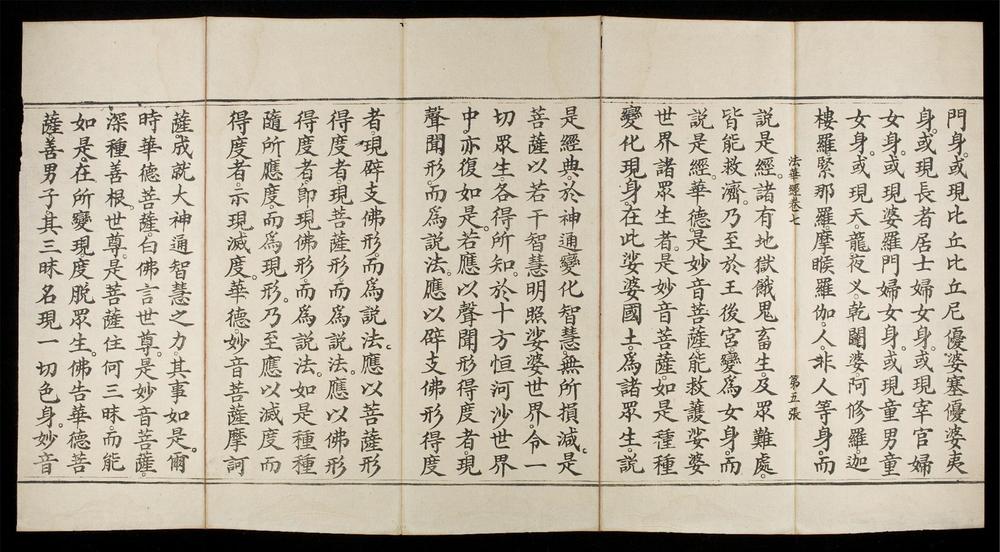 門身。或現比丘比丘尼優婆塞優婆夷
身。或現長者居士婦女身。或現宰官婦
女身。或現婆羅門婦女身。或現童男童
女身。或現天。龍夜叉。乾闥婆。阿修羅。迦
樓羅緊那羅。摩睺羅伽。人非人等身。而
法華經卷七 第五張
說是經。諸有地獄餓鬼畜生。及眾難處。
皆能救濟。乃至於王後宮變爲女身。而
說是經。華德。是妙音菩薩能救護娑婆
世界諸眾生者。是妙音菩薩。如是種種
變化現身。在此娑婆國土。爲諸眾生。說
是經典。於神通變化智慧。無所損減。是
菩薩以若干智慧明照娑婆世界。令一
切眾生各得所知。於十方恒河沙世界
中。亦復如是。若應以聲聞形得度者。現
聲聞形。而爲說法。應以辟支佛形得度
者。現辟支佛形。而爲說法。應以菩薩形
得度者現菩薩形。而爲說法。應以佛形
得度者。即現佛形。而爲說法。如是種種
隨所應度。而爲現形。乃至應以滅度而
得度者。示現滅度。華德。妙音菩薩摩訶
薩。成就大神通智慧之力。其事如是。爾
時華德菩薩。白佛言世尊。是妙音菩薩。
深種善根。世尊。是菩薩住何三昧。而能
如是。在所變現度脫眾生。佛告華德菩
薩。善男子其三昧名現一切色身。妙音